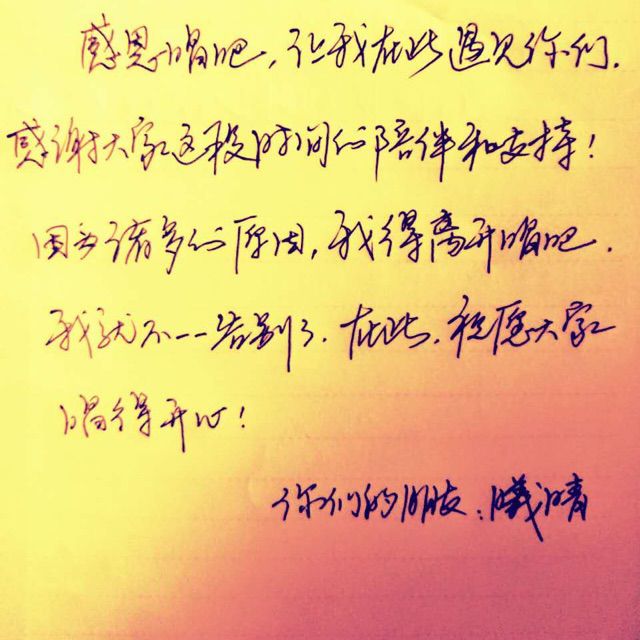 感恩唱吧，让我在此遇见你们.
感谢大家这段时间的陪伴和支持！
因为诸多的原因，我得离开唱吧.
我就不一一告别了.在此.祝愿大家
唱得开心！
你们的朋友：曦晴